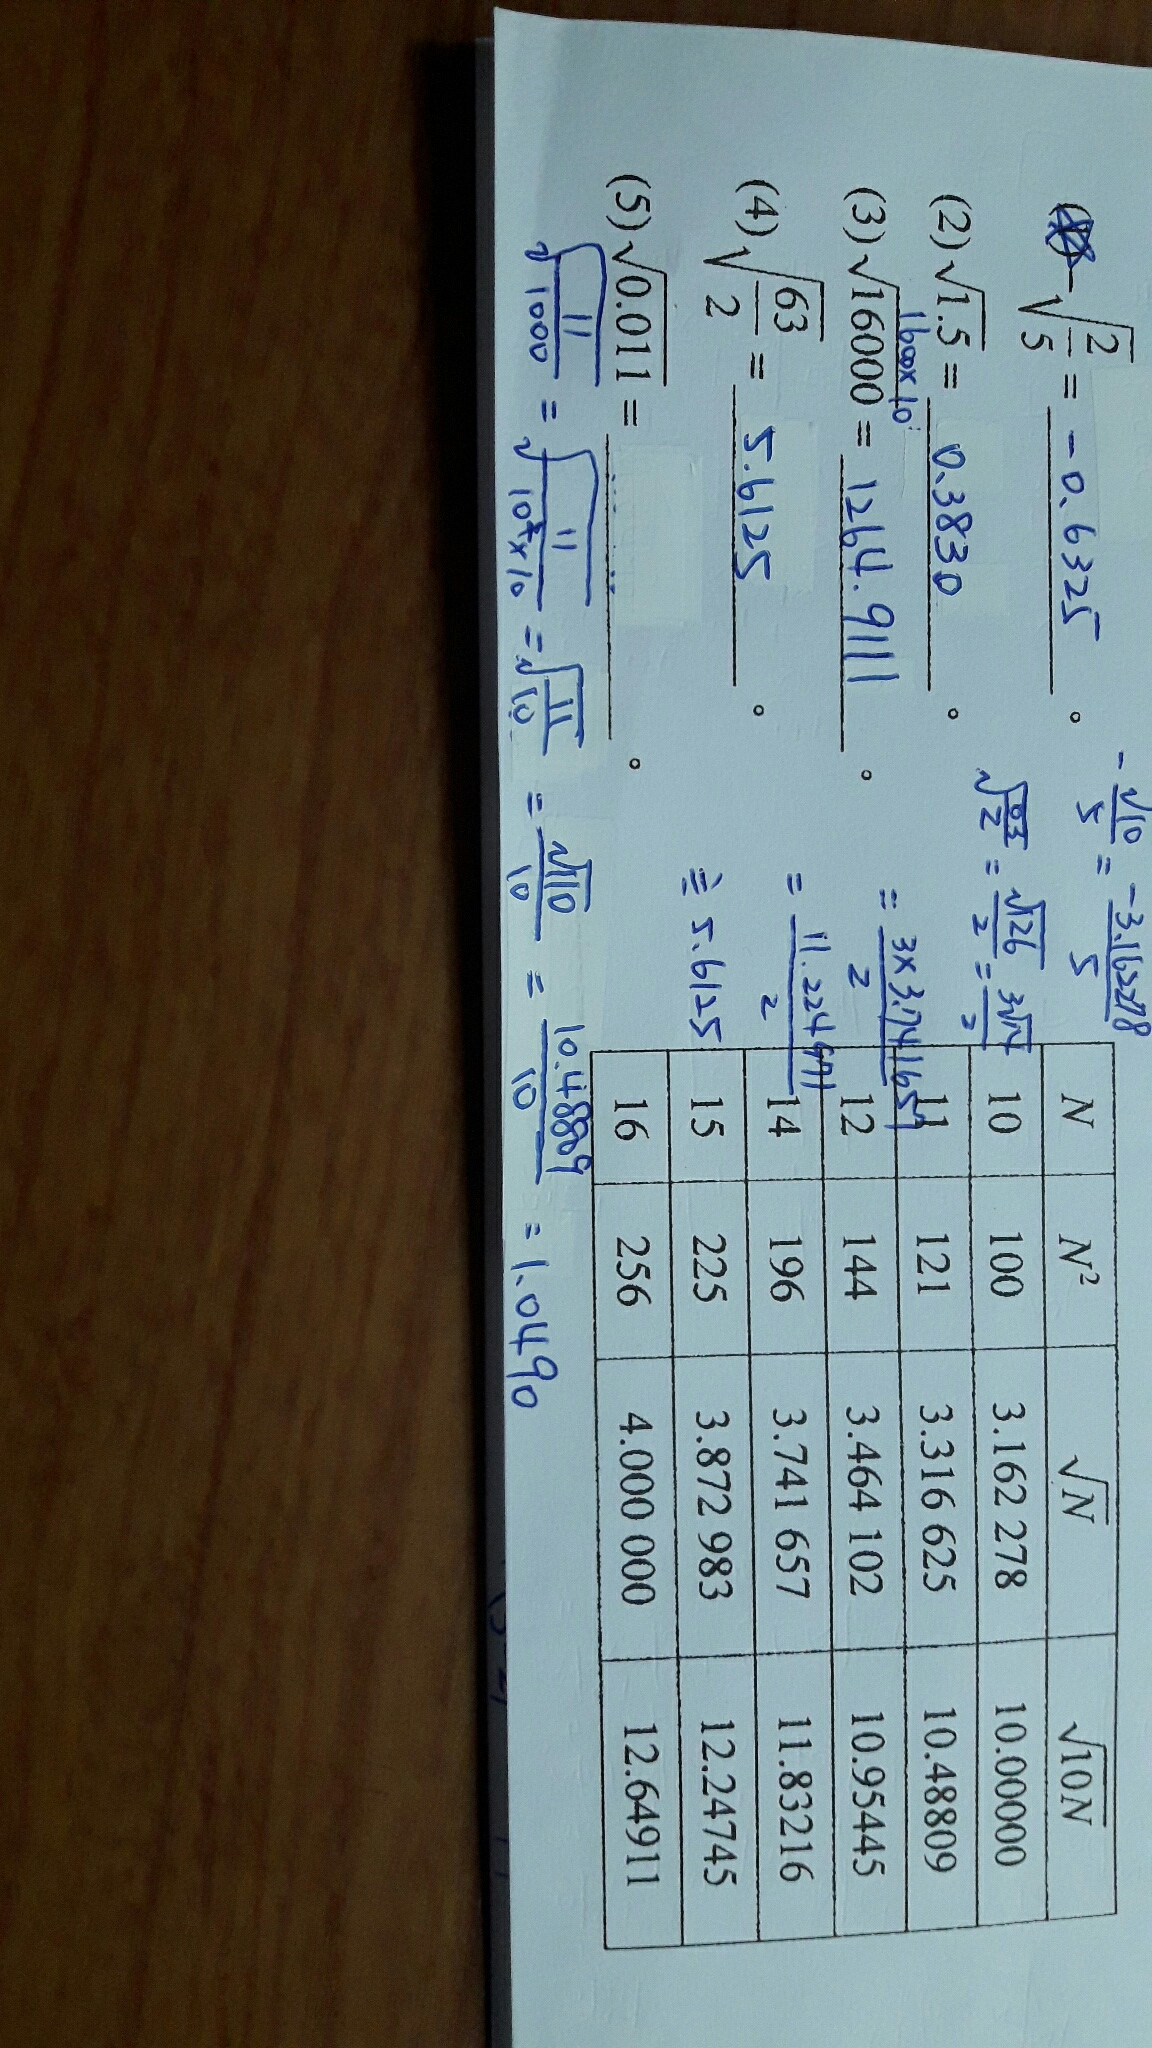 -√(2/5) = -0.6325 。
-√10/5 = -3.162278/5
(2) √1.5 = 0.3830 。
√(63/2) = √126/2 = 3√14/2
1600×10
(3) √16000 = 1264.9111 。
= 3×3.741657/2
(4) √(63/2) = 5.6125 。
= 11.224971/2
≒ 5.6125
(5) √0.011 = 。
√(11/1000) = √(11/10²×10) = √11/√10 = √110/10 = 10.48809/10 = 1.0490
N N² √N √10N
10 100 3.162 278 10.00000
11 121 3.316 625 10.48809
12 144 3.464 102 10.95445
14 196 3.741 657 11.83216
15 225 3.872 983 12.24745
16 256 4.000 000 12.64911